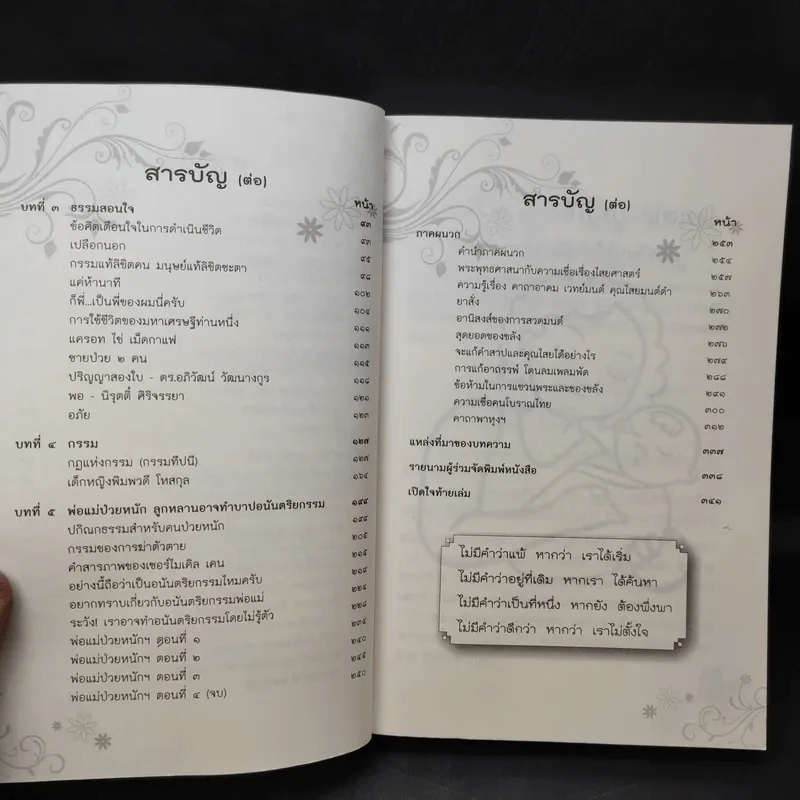 สารบัญ (ต่อ)
หน้า
บทที่ ๓ ธรรมสอนใจ ๙๓
ข้อคิดเตือนใจในการดำเนินชีวิต ๙๓
เปลือกนอก ๙๕
กรรมแท้ลิขิตคน มนุษย์แท้ลิขิตชะตา ๙๘
แค่ห้านาที ๑๐๒
ก็พี่...เป็นพี่ของผมนี่ครับ ๑๐๔
การใช้ชีวิตของมหาเศรษฐีท่านหนึ่ง ๑๑๑
แครอท ไข่ เม็ดกาแฟ ๑๑๓
ชายป่วย ๒ คน ๑๑๕
ปริญญาสองใบ - ดร.อภิวัฒน์ วัฒนางกูร ๑๑๘
พอ - นิรุตติ์ ศิริจรรยา ๑๒๑
อภัย ๑๒๓
บทที่ ๔ กรรม ๑๒๗
กฎแห่งกรรม (กรรมทีปนี) ๑๒๗
เด็กหญิงพิมพวดี โหสกุล ๑๖๔
บทที่ ๕ พ่อแม่ป่วยหนัก ลูกหลานอาจทำบาปอนันตริยกรรม ๑๙๙
ปกิณกธรรมสำหรับคนป่วยหนัก ๑๙๙
กรรมของการฆ่าตัวตาย ๒๐๕
คำสารภาพของเชอร์ไมเคิล เคน ๒๑๕
อย่างนี้ถือว่าเป็นอนันตริยกรรมไหมครับ ๒๑๙
อยากทราบเกี่ยวกับอนันตริยกรรมพ่อแม่ ๒๒๔
ระวัง! เราอาจทำอนันตริยกรรมโดยไม่รู้ตัว ๒๒๘
พ่อแม่ป่วยหนักฯ ตอนที่ ๑ ๒๓๔
พ่อแม่ป่วยหนักฯ ตอนที่ ๒ ๒๔๐
พ่อแม่ป่วยหนักฯ ตอนที่ ๓ ๒๔๕
พ่อแม่ป่วยหนักฯ ตอนที่ ๔ (จบ) ๒๕๐
สารบัญ (ต่อ)
หน้า
ภาคผนวก ๒๕๓
คำนำภาคผนวก ๒๕๔
พระพุทธศาสนากับความเชื่อเรื่องไสยศาสตร์ ๒๕๗
ความรู้เรื่อง คาถาอาคม เวทย์มนต์ คุณไสยมนต์ดำ ๒๖๓
ยาสั่ง ๒๗๐
อานิสงส์ของการสวดมนต์ ๒๗๒
สุดยอดของขลัง ๒๗๖
จะแก้คำสาปและคุณไสยได้อย่างไร ๒๗๙
การแก้อาถรรพ์ โดนลมเพลมพัด ๒๘๘
ข้อห้ามในการแขวนพระและของขลัง ๒๙๑
ความเชื่อคนโบราณไทย ๓๐๐
คาถาพาหุงฯ ๓๑๒
แหล่งที่มาของบทความ ๓๓๗
รายนามผู้ร่วมจัดพิมพ์หนังสือ ๓๓๘
เปิดใจท้ายเล่ม ๓๔๑
ไม่มีคำว่าแพ้ หากว่า เราได้เริ่ม
ไม่มีคำว่าอยู่ที่เดิม หากเรา ได้ค้นหา
ไม่มีคำว่าเป็นที่หนึ่ง หากยัง ต้องพึ่งพา
ไม่มีคำว่าดีกว่า หากว่า เราไม่ตั้งใจ